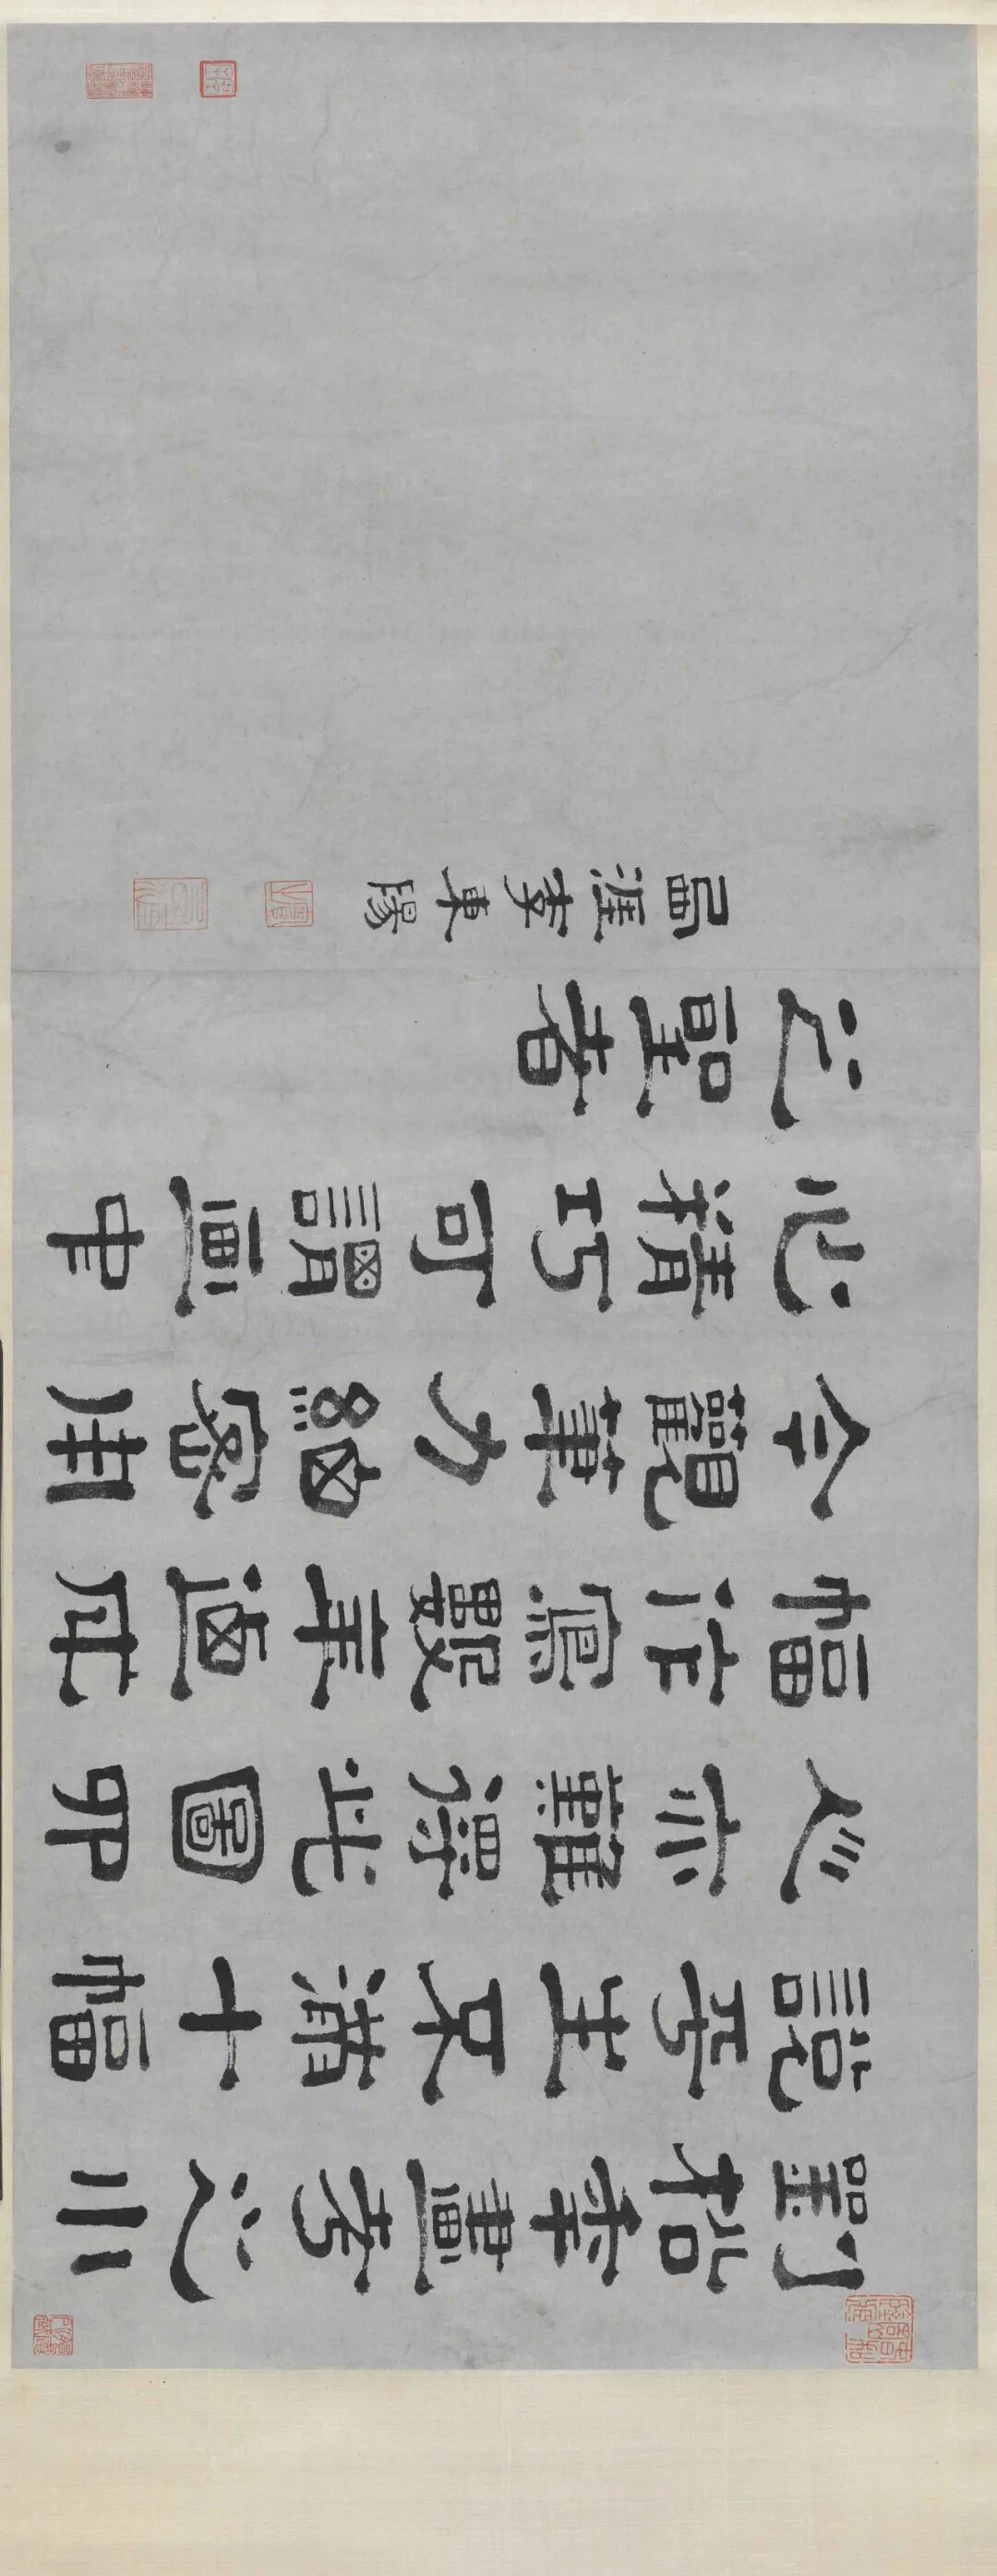 劉松年畫考之小
說平生不滿十幅
人亦難得此圖四
幅作寫數年迺成
今觀筆力細密用
心精巧可謂畫中
之聖者
西涯李東陽